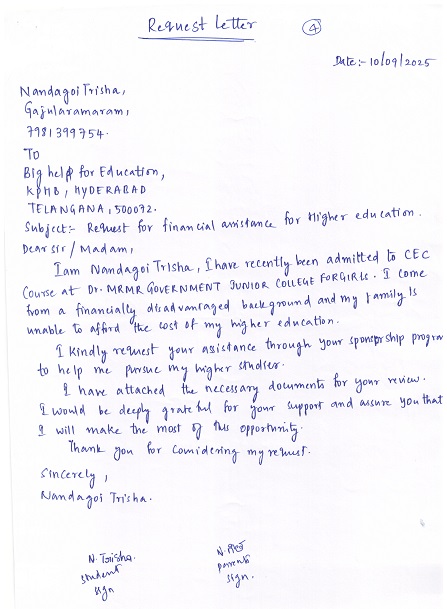 Request Letter ④
Date:- 10/09/2025
Nandagoi Trisha,
Gajularamaram,
7981399754.
To
Big help for Education,
KPHB, HYDERABAD
TELANGANA, 500072.
Subject:- Request for financial assistance for Higher education.
Dear Sir / Madam,
I am Nandagoi Trisha, I have recently been admitted to CEC
Course at Dr. MRMR GOVERNMENT JUNIOR COLLEGE FOR GIRLS. I come
from a financially disadvantaged background and my family Is
unable to afford the cost of my higher education.
I kindly request your assistance through your sponsorship program
to help me pursue my higher studies.
I have attached the necessary documents for your review.
I would be deeply grateful for your support and assure you that
I will make the most of this opportunity.
Thank you for considering my request.
Sincerely,
Nandagoi Trisha.
N. Trisha.
student
sign
N.
parents
sign.